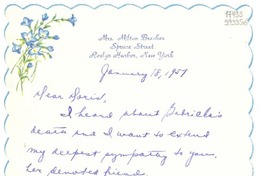 Mrs. Milton Becker
Spruce Street
Roslyn Harbor, New York
January 18, 1957
Dear Doris,
I heard about Gabriela's
death and I want to extend
my deepest sympathy to you,
her devoted friend.